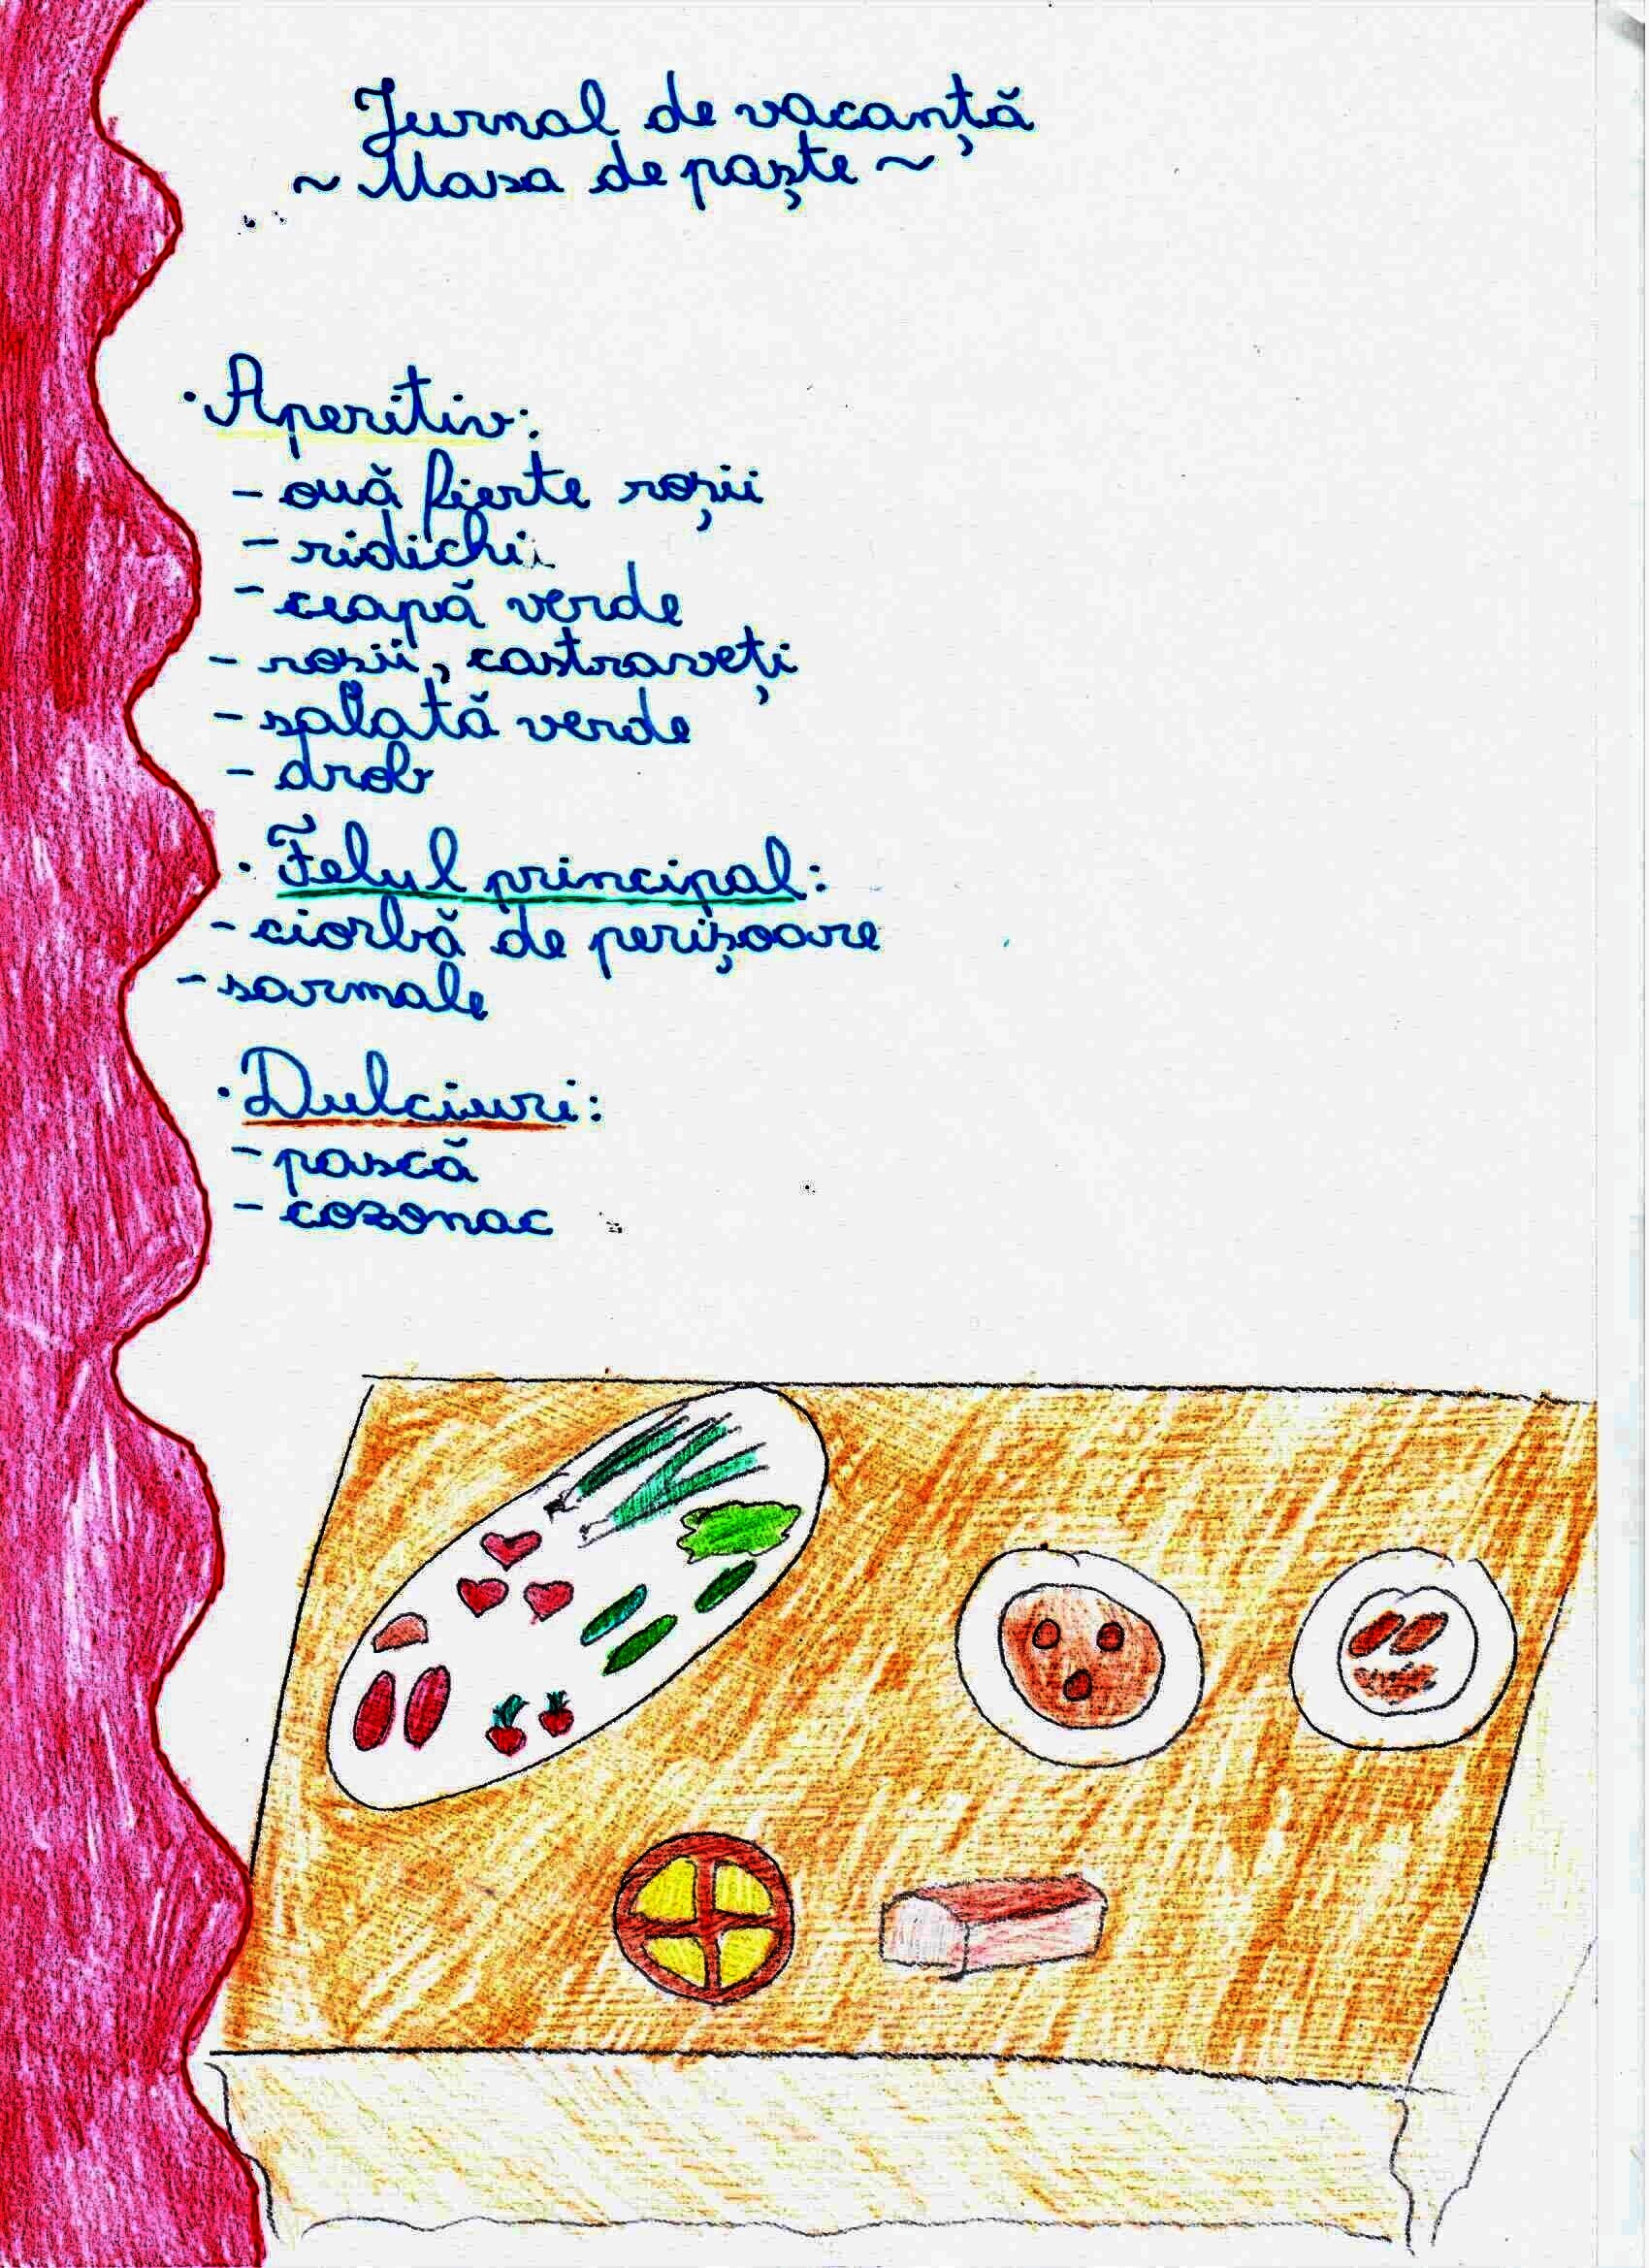 Jurnal de vacanță
~ Masa de paște ~
· Aperitiv:
- ouă fierte roșii
- ridichi
- ceapă verde
- rosii, castraveți
- salată verde
- drob
· Felul principal:
- ciorbă de perișoare
- sarmale
· Dulciuri:
- pască
- cozonac